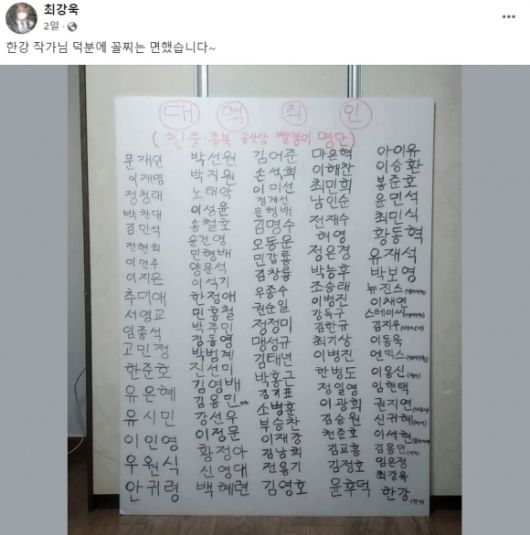 최강욱
2일
한강 작가님 덕분에 꼴찌는 면했습니다~
대역죄인
(친중·종북 공산당 빨갱이 명단)
문재인
이재명
정청래
박찬대
김민석
전현희
이언주
이지은
추미애
서영교
임종석
고민정
한준호
유은혜
유시민
이인영
우원식
안귀령
박선원
박지원
노태악
이성윤
송철호
윤건영
민형배
양문석
이석기
한정애
민홍철
박주민
정동영
박범계
진선미
김영배
김용민
강선우
이정문
황정아
신영대
백혜련
김어준
손석희
이미선
정계선
문형배
김명수
오동운
민갑룡
김창룡
우종수
권순일
정정미
맹성규
김태년
박홍근
김기표
소병훈
부승찬
이재강
김남희
전용기
김영호
마은혁
이해찬
최민희
남인순
전재수
허영
정은경
박능후
조승래
이병진
강득구
김한규
최기상
이병진
한병도
정일영
이광희
김승원
천준호
김교흥
김정호
윤후덕
아이유
이승환
봉준호
윤민석
최민식
황동혁
유재석
박보영
뉴진스
이채연
스테이씨
김지우
이동욱
엔믹스
이용신
임현택
권지연
신귀혜
이세현
김용민
임은정
최강욱
한강